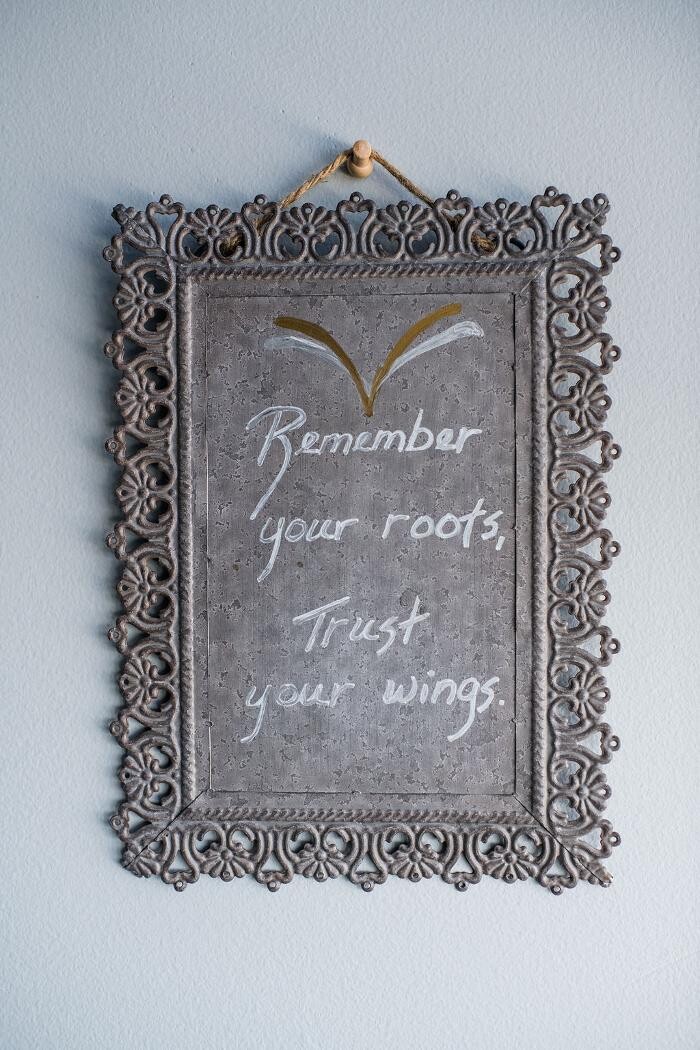 Remember
your roots,
Trust
your wings.